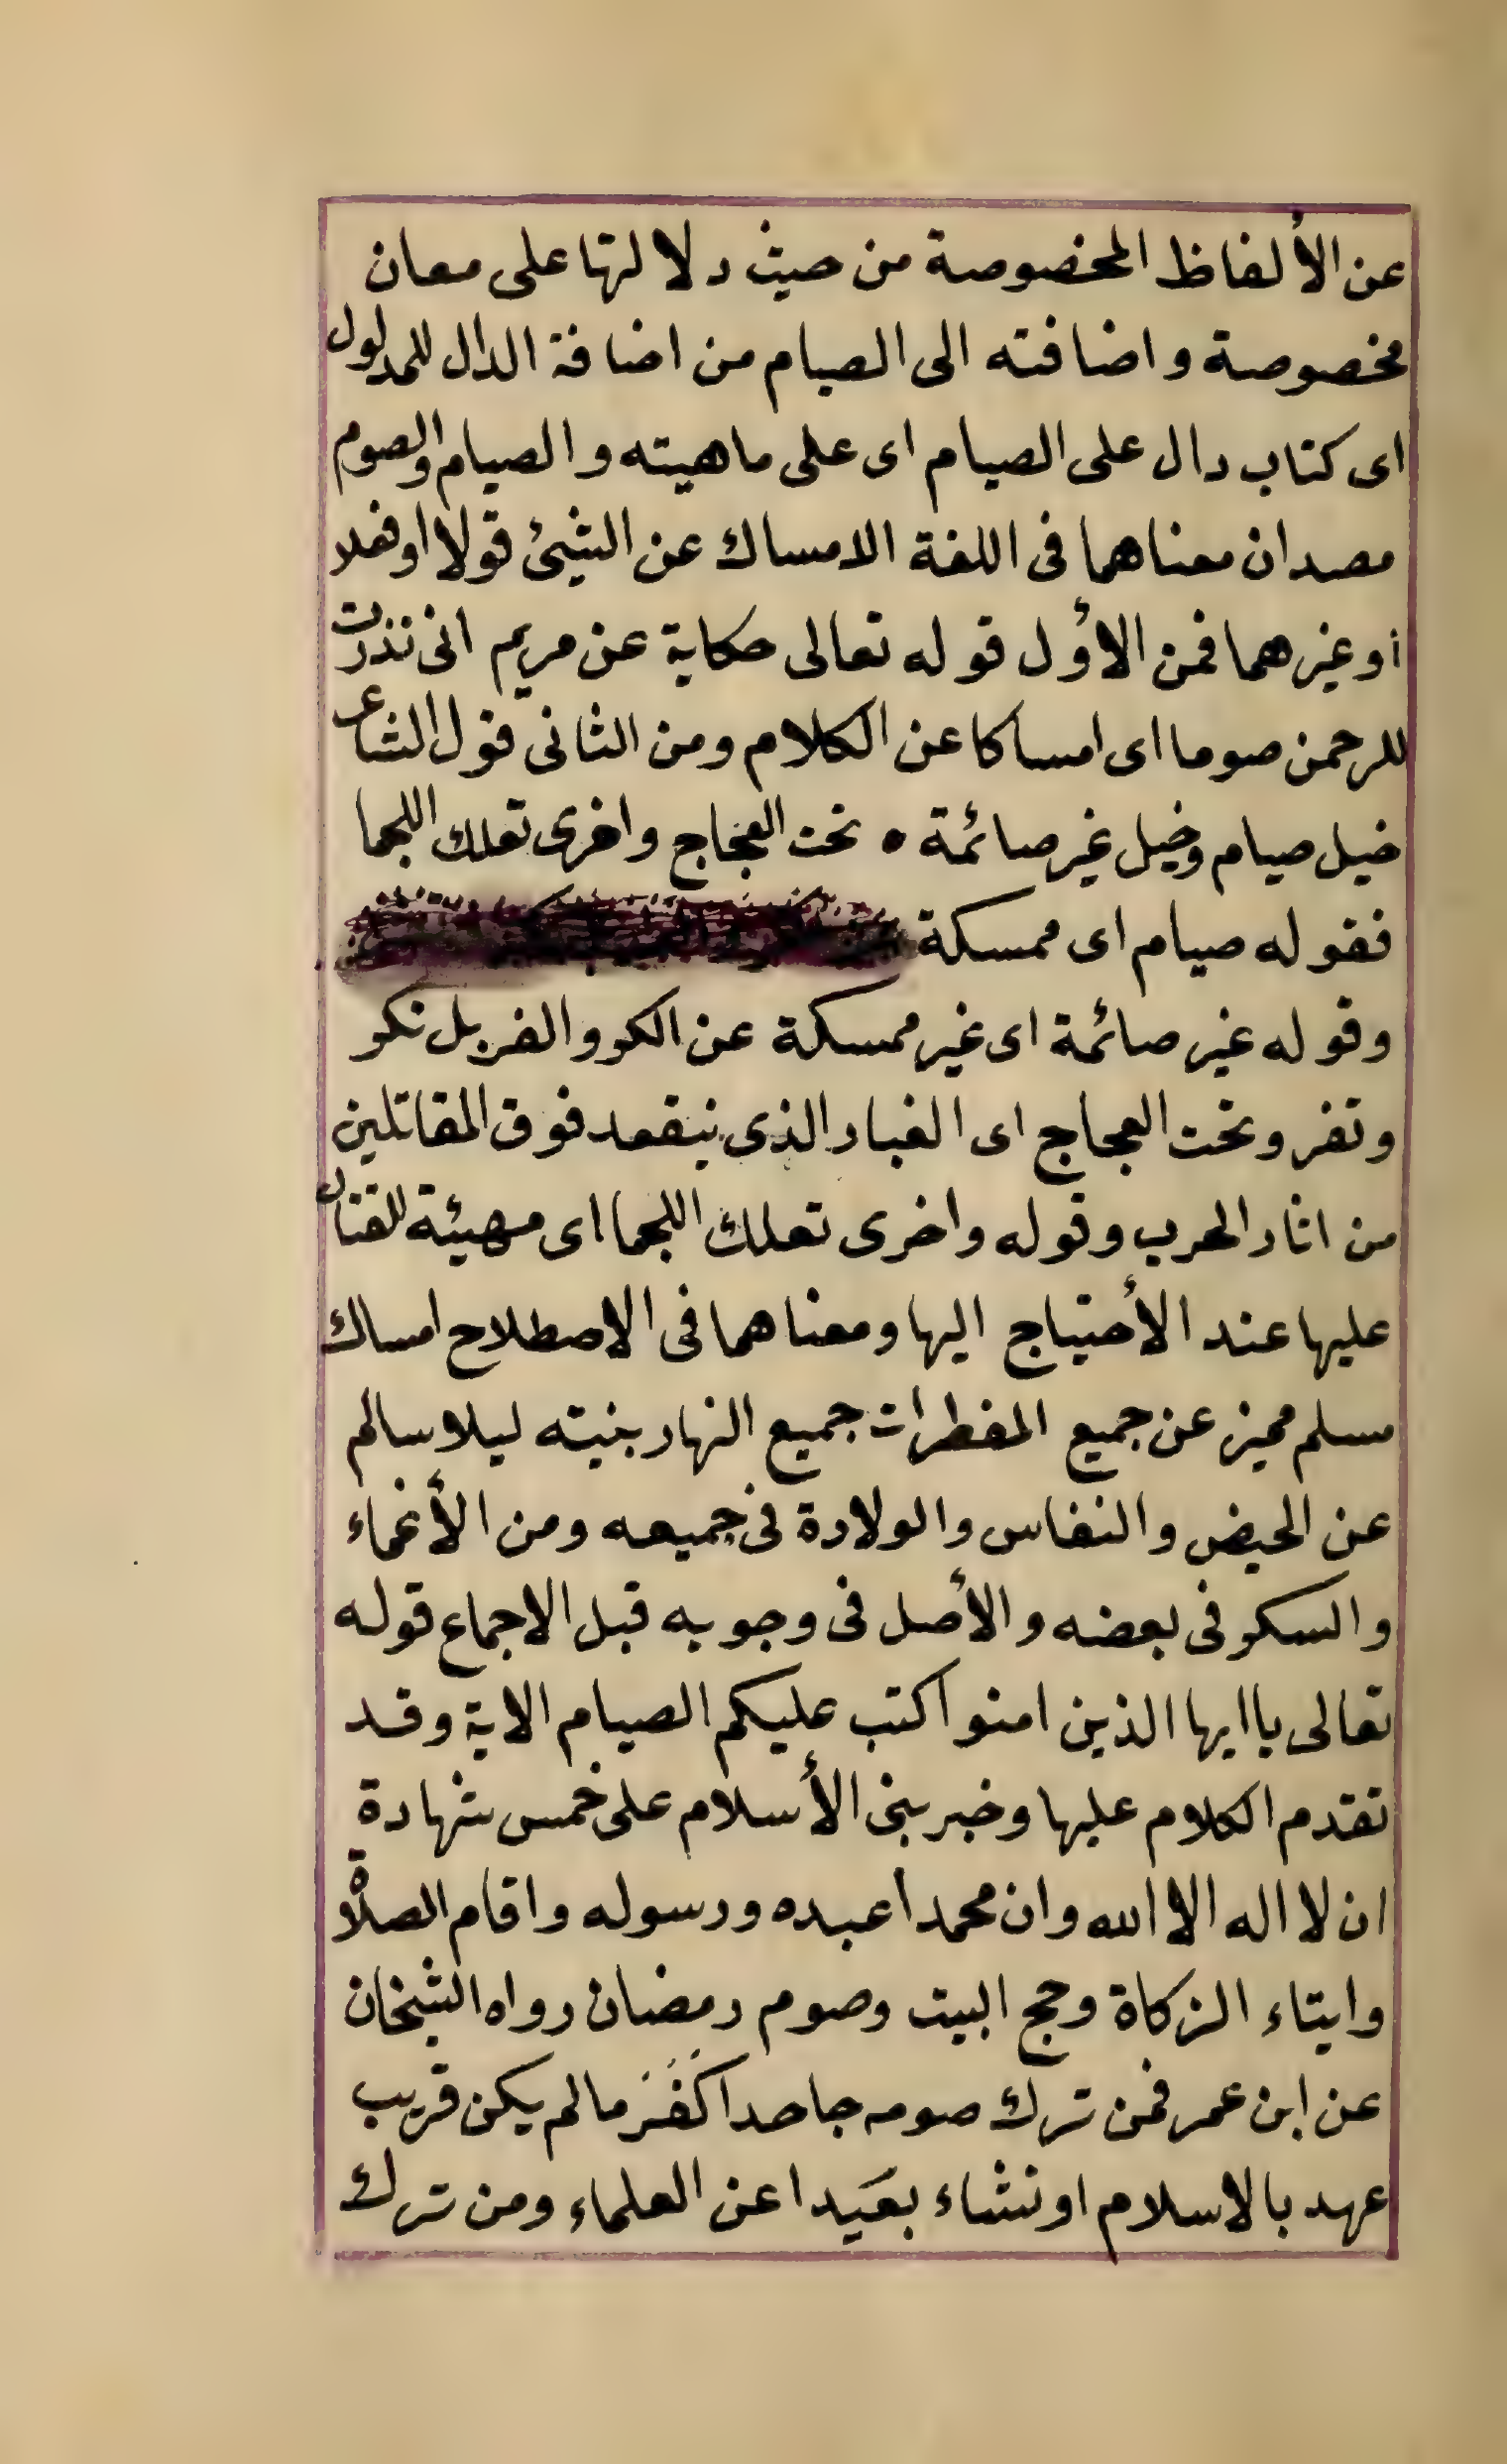 عن الألفاظ المخصوصة من حيث دلالتها على معان
مخصوصة واضافته الى الصيام من اضافة الدال للمدلول
اى كتاب دال على الصيام اى على ماهيته والصيام والصوم
مصدان معناهما فى اللغة الامساك عن الشيئ قولا اوفعلا
أوغيرهما فمن الأول قوله تعالى حكاية عن مريم انى نذرت
للرحمن صوما اى امساكا عن الكلام ومن الثانى قول الشاعر
خيل صيام وخيل غير صائمة ٥ تحت العجاج واخرى تعلك اللجما
فقوله صيام اى ممسكة
وقوله غير صائمة اى غير ممسكة عن الكر والفر بل تكر
وتفر وتحت العجاج اى الغبار الذى ينعقد فوق المقاتلين
من اثار الحرب وقوله واخرى تعلك اللجما اى مهيئة للقتال
عليها عند الأحتياج اليها ومعناهما فى الاصطلاح امساك
مسلم مميز عن جميع المفطرات جميع النهار بنيته ليلا سالم
عن الحيض والنفاس والولادة فى جميعه ومن الأغماء
والسكر فى بعضه والأصل فى وجوبه قبل الاجماع قوله
تعالى ياايها الذين امنوا كتب عليكم الصيام الاية وقد
تقدم الكلام عليها وخبر بنى الأسلام على خمس شهادة
ان لا اله الا الله وان محمدا عبده ورسوله واقام الصلاة
وايتاء الزكاة وحج البيت وصوم رمضان رواه الشيخان
عن ابن عمر فمن ترك صومه جاحدا كَفَرَ مالم يكن قريب
عهد بالاسلام اونشاء بعيدا عن العلماء ومن ترك